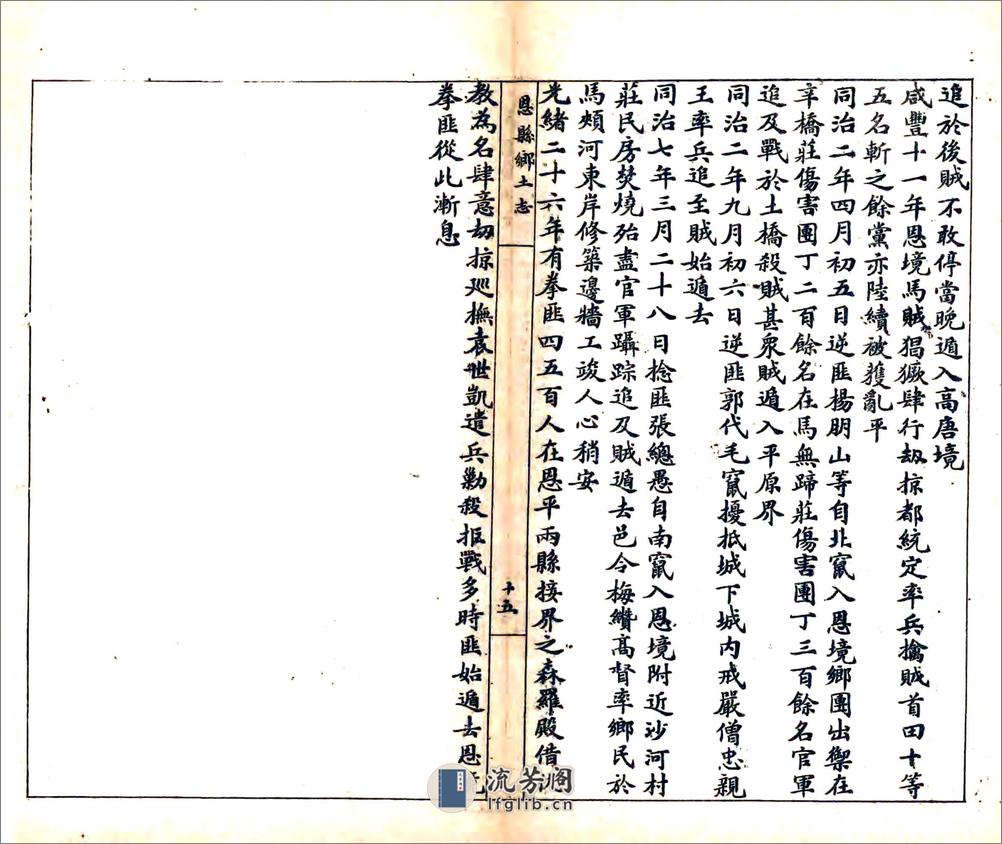 追於後賊不敢停當晚遁入高唐境
咸豐十一年恩境馬賊猖獗肆行刼掠都統定率兵擒賊首田十等
五名斬之餘黨亦陸續被獲亂平
同治二年四月初五日逆匪楊朋山等自北竄入恩境鄉團出禦在
辛橋莊傷害團丁二百餘名在馬無蹄莊傷害團丁三百餘名官軍
追及戰於土橋殺賊甚衆賊遁入平原界
同治二年九月初六日逆匪郭代毛竄擾抵城下城内戒嚴僧忠親
王率兵追至賊始遁去
同治七年三月二十八日捻匪張總愚自南竄入恩境附近沙河村
莊民房焚燒殆盡官軍躡踪追及賊遁去邑令梅纘高督率鄉民於
馬頰河東岸修築邊牆工竣人心稍安
光緒二十六年有拳匪四五百人在恩平兩縣接界之森羅殿借
恩縣鄉土志
十五
教為名肆意刼掠廵撫袁世凱遣兵勦殺拒戰多時匪始遁去恩
拳匪從此漸息
流芳阁
lfglib.cn